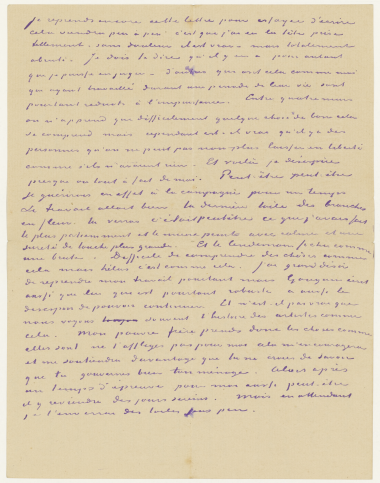 Je reprends encore cette lettre pour essayer d'écrire
cela viendra peu à peu c'est que j'ai eu la tête prise
tellement. sans douleur il est vrai – mais totalement
abruti. Je dois te dire qu'il y en a pour autant
que je puisse en juger – d'autres qui ont cela comme moi
qui ayant travaillé durant une periode de leur vie sont
pourtant reduits à l'impuissance. Entre quatre murs
on n'apprend que difficilement quelque chose de bon cela
se comprend mais cependant est-il vrai qu'il y a des
personnes qu'on ne peut pas non plus laisser en liberté
comme s'ils n'avaient rien. Et voilà je désespère
presque ou tout à fait de moi. Peut-être peut être
je guérirais en effet à la campagne pour un temps
Le travail allait bien la dernière toile des branches
en fleur tu verras c'était peutetre ce que j'avais fait
le plus patiemment et le mieux peint avec calme et une
sureté de touche plus grande. Et le lendemain fichu comme
une brute. Difficile de comprendre des choses comme
cela mais hélas c'est comme cela. J'ai grand désir
de reprendre mon travail pourtant mais Gauguin écrit
aussi que lui qui est pourtant robuste a aussi le
désespoir de pouvoir continuer. Et n'est-il pas vrai que
nous voyons souvent l'histoire des artistes comme
cela. Mon pauvre frère prends donc les choses comme
elles sont ne t'afflige pas pour moi cela m'encouragera
et me soutiendra davantage que tu ne crois de savoir
que tu gouvernes bien ton ménage. Alors après
un temps d'épreuve pour moi aussi peut-être
il y reviendra des jours sereins. Mais en attendant
je t'enverrai des toiles sous peu.